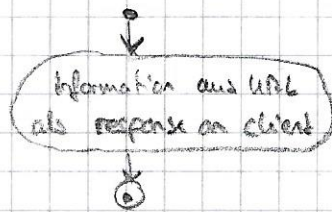 Information aus URL
als response an client